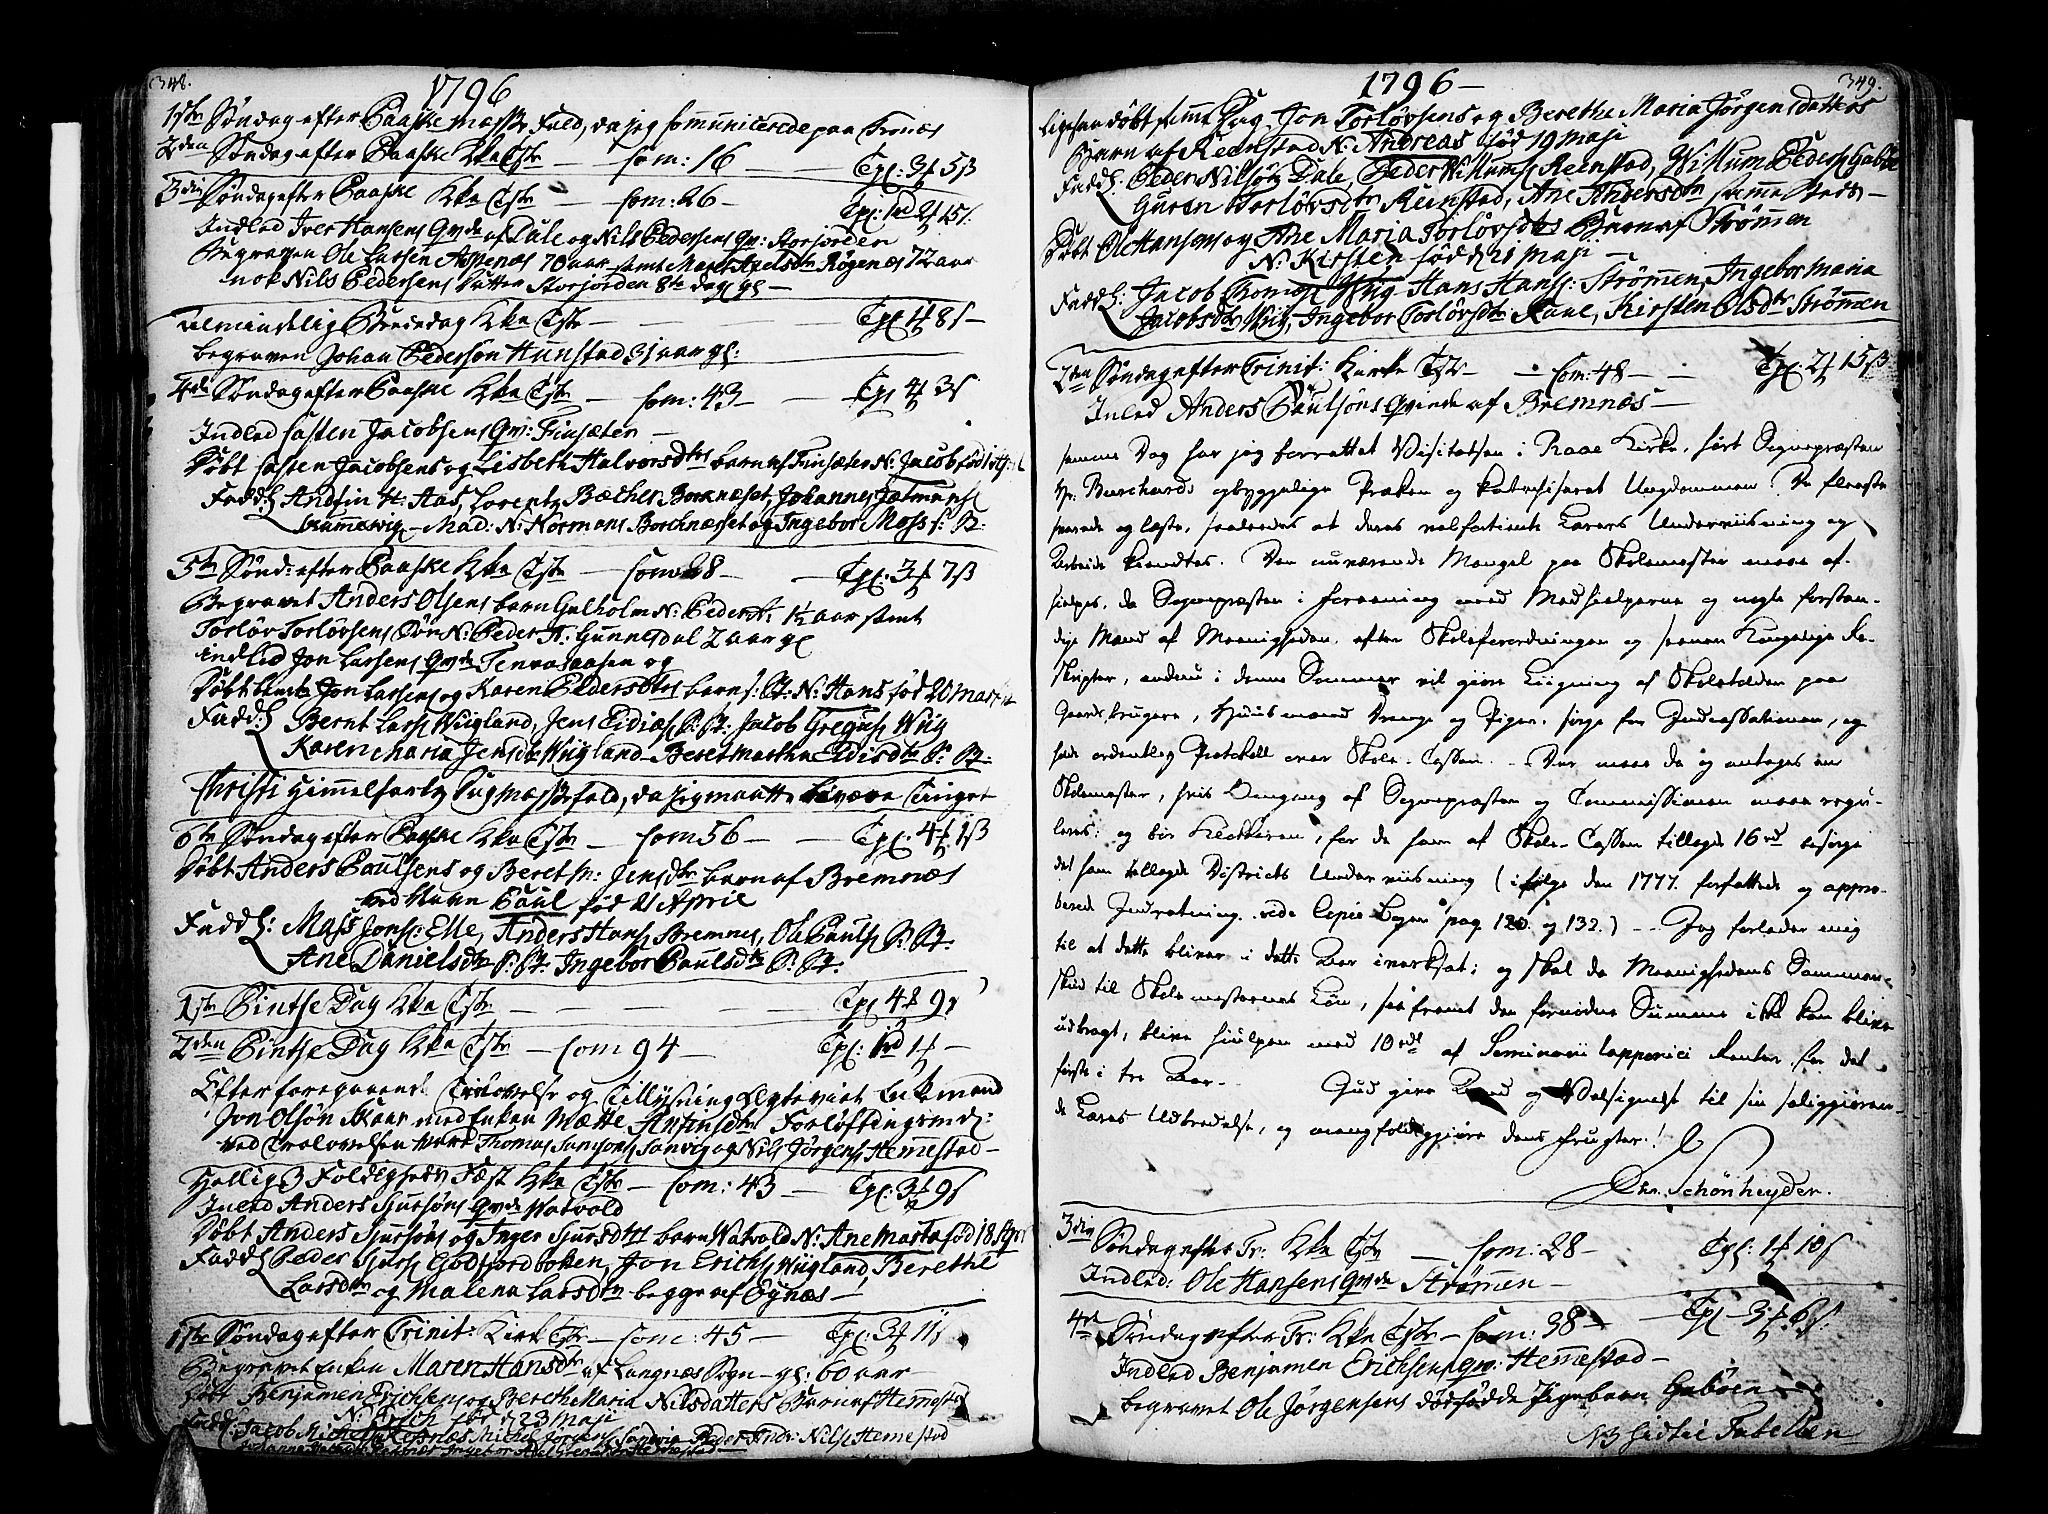 348.
1796
1ste Søndag efter Paaske Messe Fald, da jeg Communicerede paa Trenæs
2den Søndag efter Paaske Kke Tste — Com: 16 — Tpl: 3f 5ß
3die Søndag efter Paaske Kke Tste — Com: 26 — Tpl: 1rd 2f 15ß
Indled Iver Hansens Qvde af Dale og Nils Pedersens Qv: Storjorden
Begraven Ole Larsen Aspenæs 70 aar samt Maret Axelsdtr Røgenæs 72 aar
nok Nils Pedersens Datter Storjorden 8te dage gl —
Almindelig Beededag Kke Tste — Tpl 4f 8ß —
begraven Johan Pedersøn Hunstad 31 aar gl:
4de Søndag efter Paaske Kke Tste — Com: 43 — Tpl 4f 3ß
Indled Casten Jacobsens Qv: Finsæter —
Døbt Casten Jacobsens og Lisbeth Halvorsdtrs barn af Finsæter N: Jacob fød
Fadd: Andfin H. Aas, Lorentz Bæcher Borknæset, Johannes
Mad: N: Normans Borchnæsset og Ingebor Moss s: St:
5te Sønd: efter Paaske Kke Tste — Com 28 — Tpl: 3f 7ß
Begravet Anders Olsens barn Gulholm N: Peder A: 1½ aar samt
Torløv Torløvsens Søn N: Peder A: Gunnesdal 2 aar gl
indled Jon Larsens Qvde Tennasaasen og
Døbt bemte Jon Larsens og Karen Pedersdtrs barn s: St: N: Hans fød 20 Martii
Fadd: Bernt Lars Wiigland, Jens Eidias S: St: Jacob Gregus Wiig
Karen Maria Jensdtr Wiigland — Beret Martha Eidisdtr S: St:
Christi Himmelfarts Dag Messefald, da jeg maatte bivære Tinget
6te Søndag efter Paaske Kke Tste — Com 56 — Tpl: 4f 1ß
Døbt Anders Paulsens og Beret M: Jensdtr barn af Bremnæs
ved Navn Paul fød 21 April
Fadd: Mass Jons: Elle, Anders Hans Bremnes, Ole Pauls S: St:
Ane Danielsdtr S: St: Ingebor Paulsdtr S: St:
1ste Pintse Dag Kke Tste — Tpl 4f 9ß
2den Pintse Dag Kke Tste — Com 94 — Tpl: 1rd 1f —
Efter foregaaende Trolovelse og Tillysning Egteviet Enkemand
Jon Olsøn Skaar med Enken Mætte Antinsdtr Forløftingsmd:
ved Trolovelsen vare Thomas Simons Sanvig og Nils Jørgens Hemestad —
Hellig 3 Foldigheds Fæst Kke Tste — Com: 43 — Tpl: 3f 9ß
Inled Anders Sjursøns Qvde Watvold
Døbt Anders Sjursøns og Inger Sjursdtr barn Watvold N: Ane Marta fød 18 Apr
Fadd: Peder Sjurs Godfjordboten, Jon Erichs Wiigland, Berethe
Larsdtr og Malena Larsdtr begge af Øgnæs —
1ste Søndag efter Trinit: Kirk Tste — Com: 45 — Tpl: 3f 11ß
Begravet Enken Maren Hansdtr af Langnæs Sogn — gl: 60 aar —
Døbt Benjamen Erichsens og Berethe Maria Nilsdatters Barn af Hemestad
N: Erich fød d 23 Maji
Fadd: Jacob Michel Michel Jørgens Sandvig Peder Andr: Nils Hemestad
349.
1796 —
Ligesaa døbt samme Dag Jon Torløvsens og Berethe Maria Jørgensdatters
Barn af Reinstad N: Andreas fød 19 Maji
Fadd: Peder Nilsøn Dale, Peder Willums Reinstad, Willum Peders Gaböe
Guren Torløvsdtr Reinstad, Ane Andersdtr samme Sted —
Døbt Ole Hansens og Ane Maria Torløvsdtrs Barn af Strømen
N: Kirsten fød d 21 Maji —
Fadd: Jacob Thomes Wiig Hans Hans: Strømmen, Ingebor Maria
Jacobsdtr Wiig, Ingebor Torløvsdtr Kaue, Kirsten Olsdtr Strømmen
2den Søndag efter Trinit: Kirke Tste — Com: 48 — Tpl: 2f 15ß
Inled Anders Paulsøns Qvinde af Bremnæs —
samme Dag har jeg forrettet Visitatsen i Raae Kirke, hørt Sognepræsten
Hr. Burchards opbyggelige Præken og katechiseret Ungdommen. De fleeste
svarede og læste, saaledes at deres velfortiente Lærers Underviisning og
Arbeide kiendtes. Den nuværende Mangel paa Skolemester maae af-
hielpes, da Sognepræsten i Forening med Medhielperne og nogle forstan-
dige Mænd af Meenigheden, efter Skoleforordningen og senere Kongelige Re-
skripter, endnu i denne Sommer vil giøre Liigning af Skoleholdet paa
Gaardbrugere, Huusmænd Drenge og Piger, sørge for Indcassationen, og
have ordentlig Protokoll over Skole-Cassen. — Der maae da og antages en
Skolemester, hvis Omgang af Sognepræsten og Commissionen maae regu-
leres; og bør Klokkeren, for de ham af Skole-Cassen tillagde 16rd besørge
det ham tillagde Districts Underviisning (ifølge den 1777 forfattede og appro-
berede Indretning, vide Copie-Bogen pag 120 og 132.) — Jeg forlader mig
til at dette bliver i dette Aar iverksat; og skal da Meenighedens Sammen-
skud til Skolemesterens Løn, saafremt den fornødne Summa ikke kan blive
udbragt, blive hiulpen med 10 rdl af Seminarii lapponici Renter for det
første i tre Aar. — Gud give Aand og Velsignelse til sin saliggiøren-
de Læres Udbredelse, og mangfoldiggiøre dens Frugter!
Chr. Schönheyder.
3die Søndag efter Tr: Kke Tste — Com: 28 — Tpl: 1f 10ß
Indled: Ole Hansens Qvde Strømmen —
4de Søndag efter Tr: Kke Tste — Com: 38 — Tpl — 3f: 6ß:
Indled Benjamen Erichsens qv: Hemestad —
begravet Ole Jørgensens dødfødde Pigebarn Gaböen
NB hidtil Tabellen